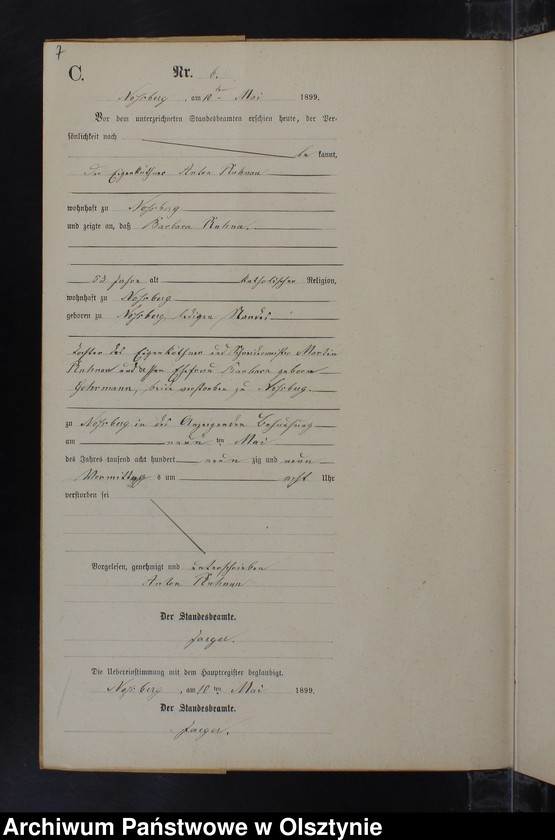 7
C.
Nr. 6.
Noßberg, am 10ten Mai 1899.
Vor dem unterzeichneten Standesbeamten erschien heute, der Per-
sönlichkeit nach
be kannt,
der Eigenkäthner Anton
wohnhaft zu Noßberg
und zeigte an, daß Barbara
53 Jahre alt katholischer Religion,
wohnhaft zu Noßberg
geboren zu Noßberg, ledigen Standes
Tochter des Eigenkäthner und Schneidermeister Martin
und dessen Ehefrau Barbara geborne
beide verstorben zu Noßberg.
zu Noßberg in des Anzeigenden Behausung
am neun ten Mai
des Jahres tausend acht hundert neun zig und neun
Vormittags um acht Uhr
verstorben sei
Vorgelesen, genehmigt und unterschrieben
Anton
Der Standesbeamte.
Jaeger.
Die Uebereinstimmung mit dem Hauptregister beglaubigt.
Noßberg, am 10ten Mai 1899.
Der Standesbeamte.
Jaeger.
Archiwum Państwowe w Olsztynie